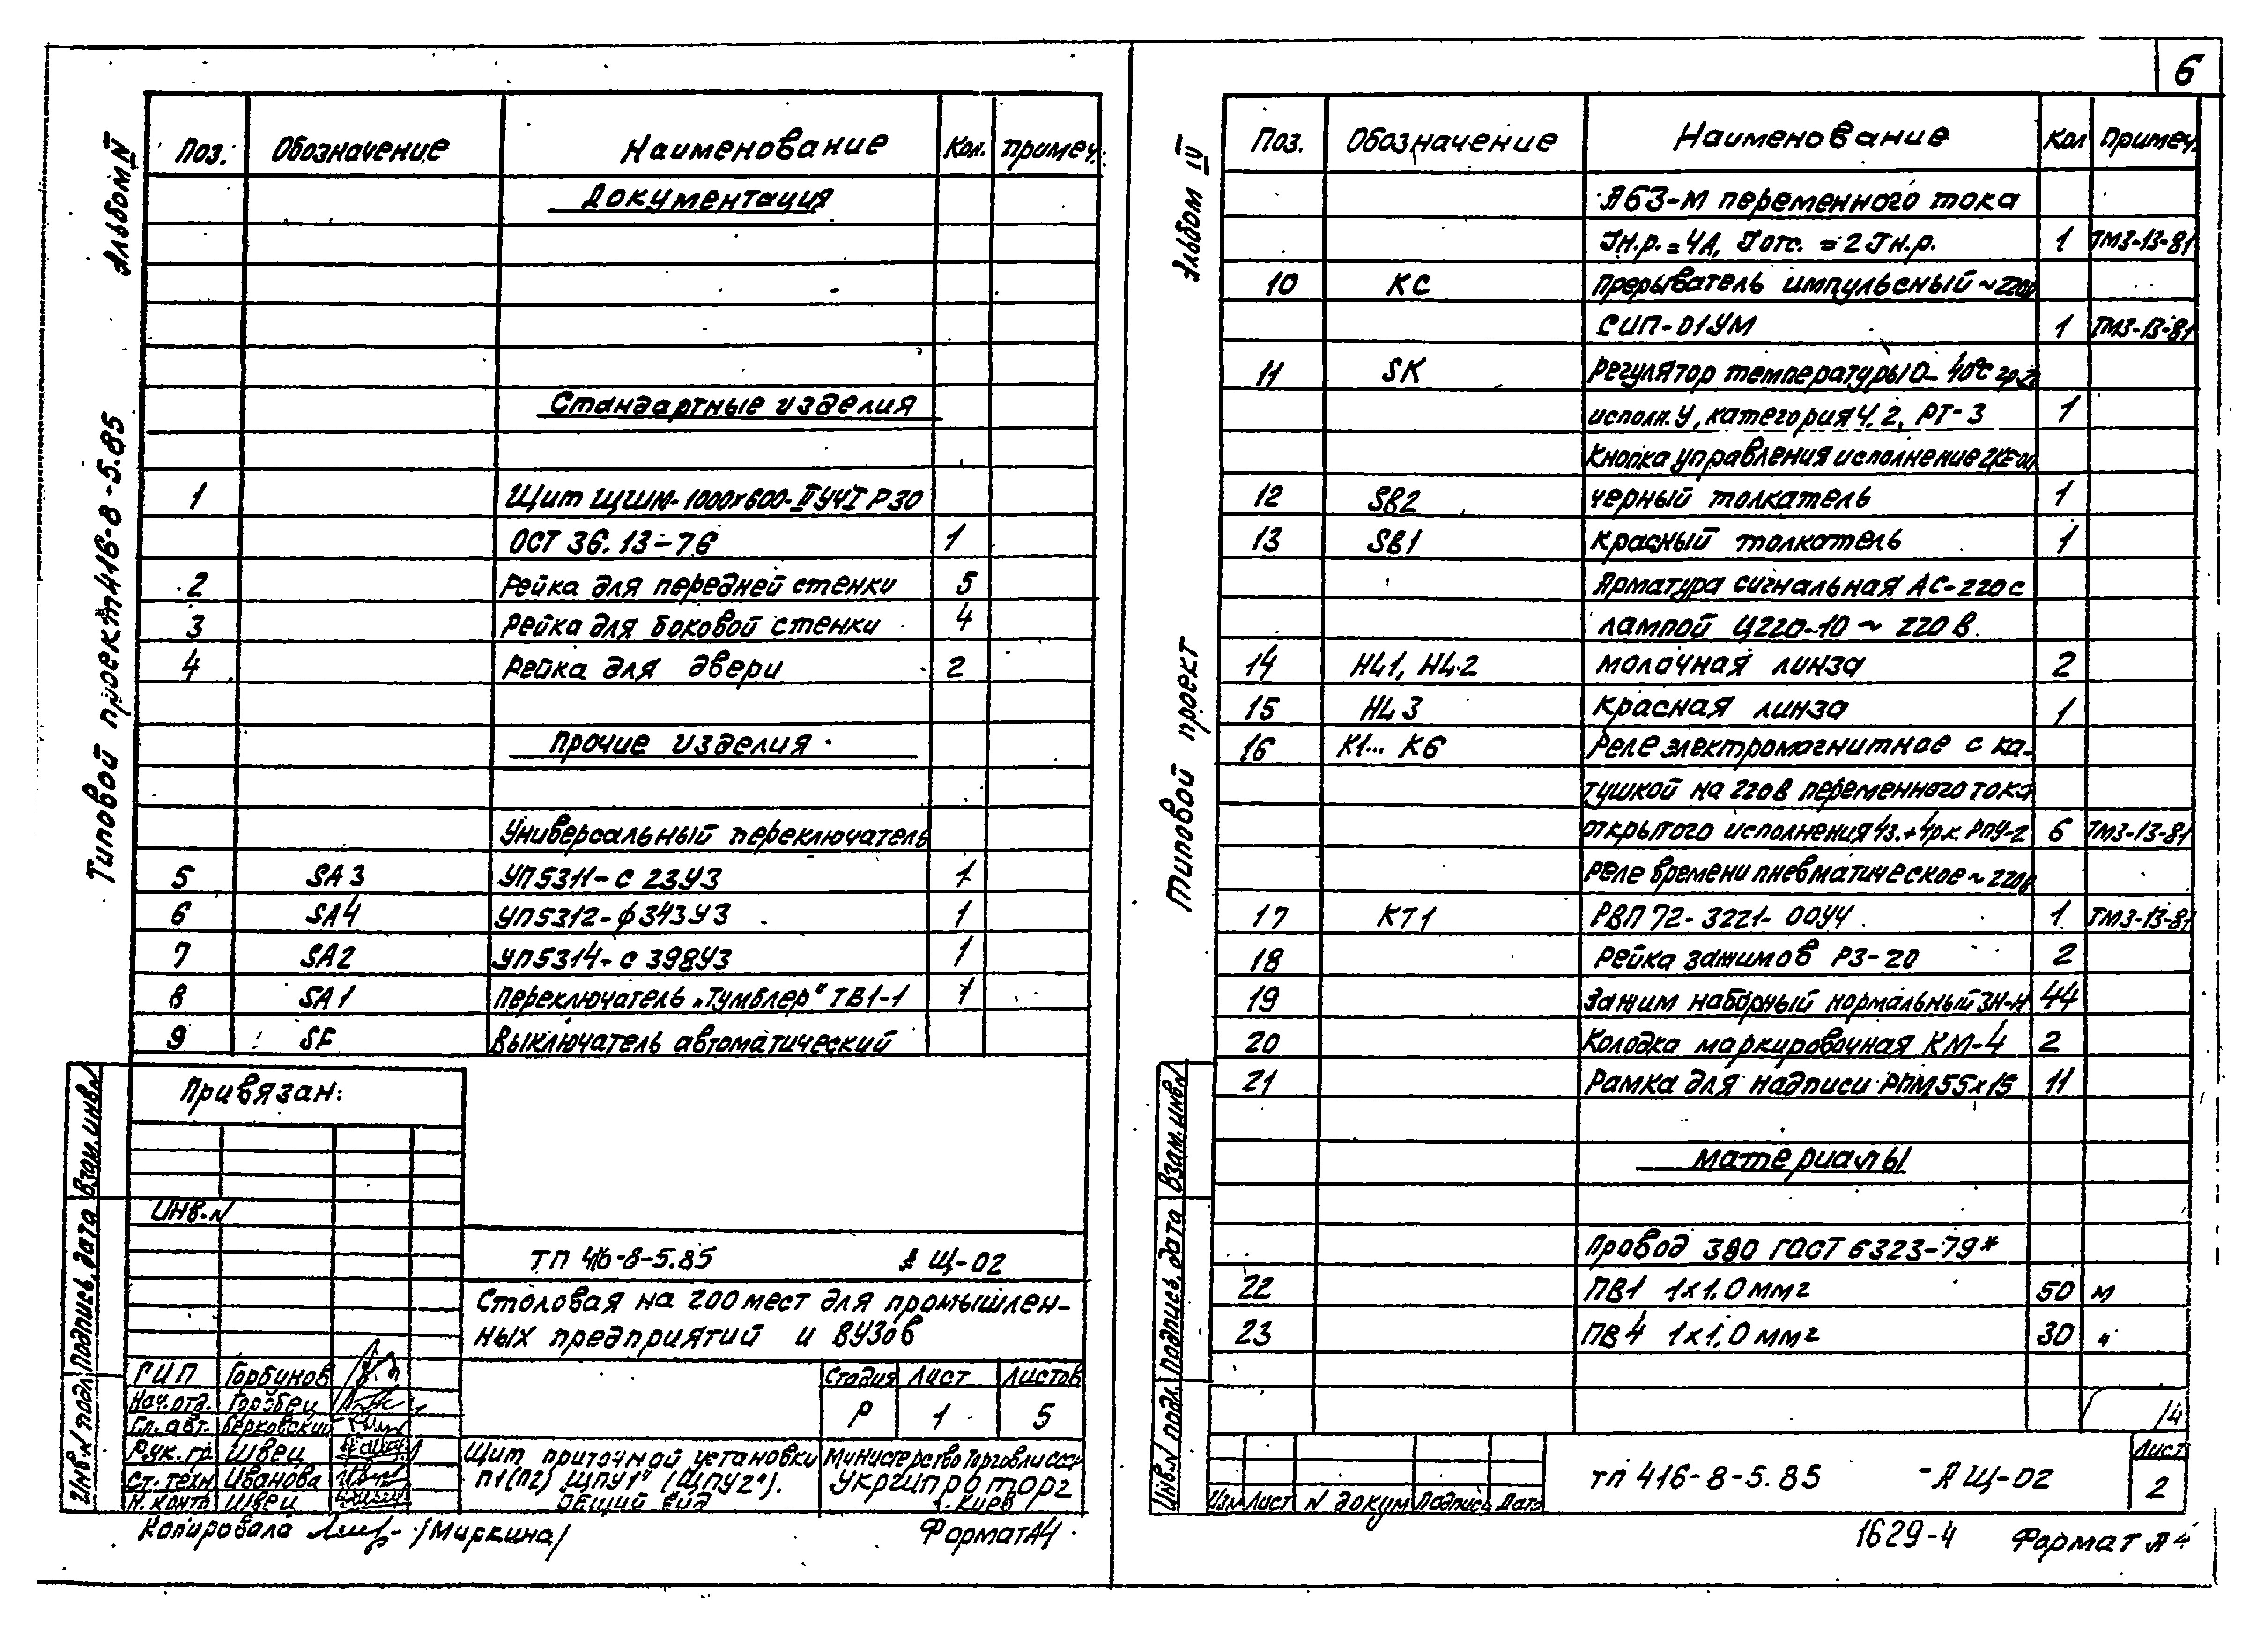 6
Альбом IV
Типовой проект 416-8-5.85
Поз. Обозначение Наименование Кол. Примеч.
Документация
Стандартные изделия
1 Щит ЩШМ-1000х600-II УЧI Р30
ОСТ 36.13-76 1
2 Рейка для передней стенки 5
3 Рейка для боковой стенки 4
4 Рейка для двери 2
Прочие изделия
Универсальный переключатель
5 SA3 УП5311-С23У3 1
6 SA4 УП5312-Ф343У3 1
7 SA2 УП5314-С398У3 1
8 SA1 Переключатель „Тумблер" ТВ1-1 1
9 SF Выключатель автоматический
Привязан:
Инв.N
ТП 416-8-5.85 АЩ-02
Столовая на 200 мест для промышлен-
ных предприятий и ВУЗов
ГИП Горбунов
Нач.отд. Горобец
Гл. авт. Берковский
Рук. гр. Швец
Ст. техн Иванова
Н. контр Швец
Стадия Лист Листов
Р 1 5
Щит приточной установки
П1(П2) ЩПУ1" (ЩПУ2").
Общий вид
Министерство Торговли СССР
Укргипроторг
г. Киев
Инв.N подл. Подпись, дата Взам.инв.N
Копировала /Миркина/ Формат А4
Альбом IV
Типовой проект
Поз. Обозначение Наименование Кол Примеч.
А63-М переменного тока
Iн.р.=4А, Iотс.=2Iн.р. 1 ТМ3-13-81
10 КС Прерыватель импульсный ~220В
СИП-01УМ 1 ТМ3-13-81
11 SK Регулятор температуры 0-40°С гр.
исполн.У, категория 4.2, РТ-3 1
Кнопка управления исполнение 2 КЕ-011
12 SB2 черный толкатель 1
13 SB1 красный толкатель 1
Арматура сигнальная АС-220 с
лампой Ц220-10 ~ 220 в.
14 HL1, HL2 молочная линза 2
15 HL3 красная линза 1
16 К1... К6 Реле электромагнитное с ка-
тушкой на 220в переменного тока
открытого исполнения 4з.+4р.к. РПУ-2 6 ТМ3-13-81
Реле времени пневматическое ~220в
17 КТ1 РВП72-3221-00У4 1 ТМ3-13-81
18 Рейка зажимов РЗ-20 2
19 Зажим наборный нормальный ЗН-Н 44
20 Колодка маркировочная КМ-4 2
21 Рамка для надписи РПМ55х15 11
Материалы
Провод 380 ГОСТ 6323-79*
22 ПВ1 1х1.0мм2 50 м
23 ПВ4 1х1.0мм2 30 "
14
Изм Лист N докум Подпись Дата
ТП 416-8-5.85 -АЩ-02
Лист
2
Инв.N подл. Подпись, дата Взам.инв.N
1629-4 Формат А4